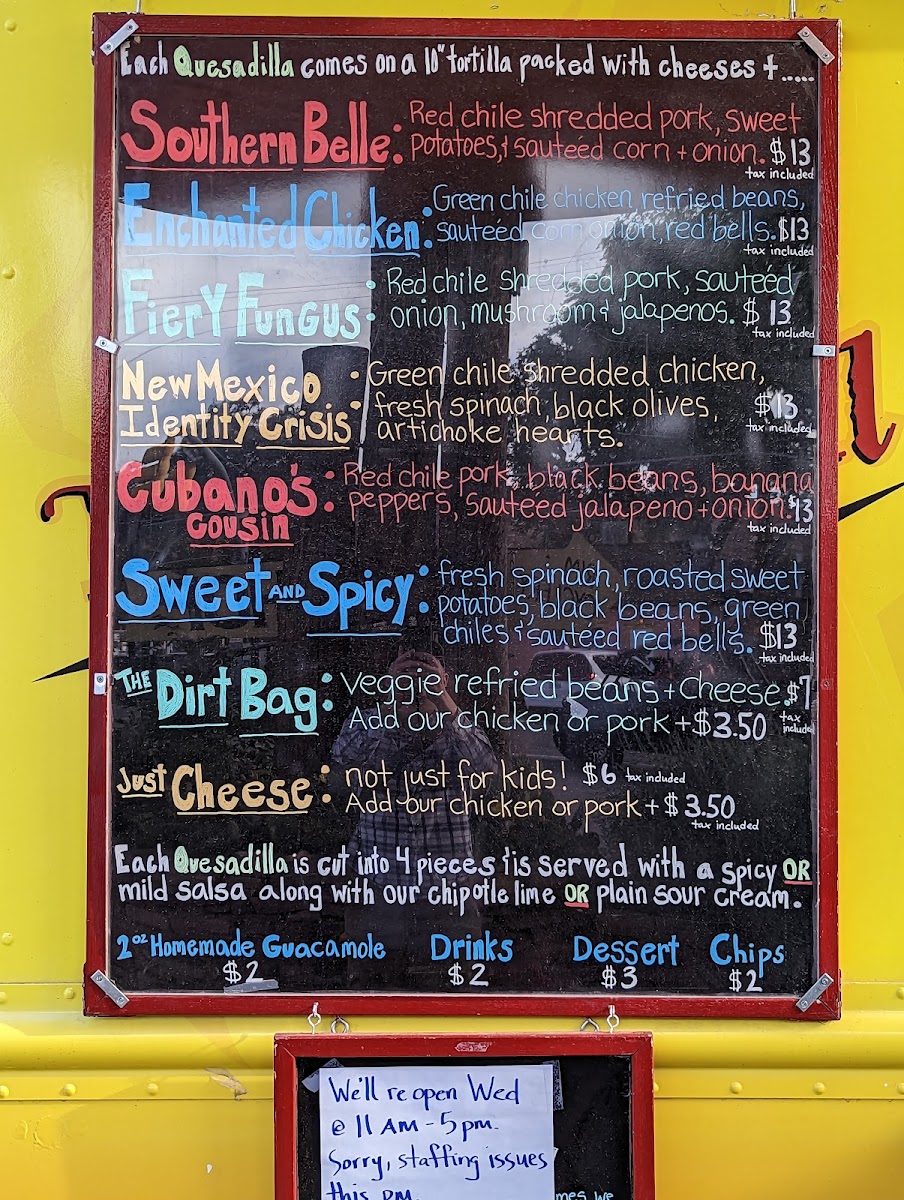 Each Quesadilla comes on a 10" tortilla packed with cheeses + .....
Southern Belle: Red chile shredded pork, sweet
potatoes, & sautéed corn + onion. $13
tax included
Enchanted Chicken: Green chile chicken refried beans,
sauteéd corn onion, red bells. $13
tax included
Fiery Fungus: Red chile shredded pork, sauteéd
onion, mushroom & jalapenos. $13
tax included
New Mexico Identity Crisis: Green chile shredded chicken,
fresh spinach, black olives, $13
artichoke hearts. tax included
Cubano's Cousin: Red chile pork, black beans, banana
peppers, sauteéd jalapeno + onion. $13
tax included
Sweet AND Spicy: fresh spinach, roasted sweet
potatoes, black beans, green
chiles & sautéed red bells. $13
tax included
THE Dirt Bag: Veggie refried beans + cheese. $7
Add our chicken or pork + $3.50 tax included
Just Cheese: not just for kids! $6 tax included
Add our chicken or pork + $3.50
tax included
Each Quesadilla is cut into 4 pieces & is served with a spicy OR
mild salsa along with our chipotle lime OR plain sour cream.
2oz Homemade Guacamole Drinks Dessert Chips
$2 $2 $3 $2
We'll reopen Wed
@ 11 AM - 5 pm.
Sorry, staffing issues
this pm.